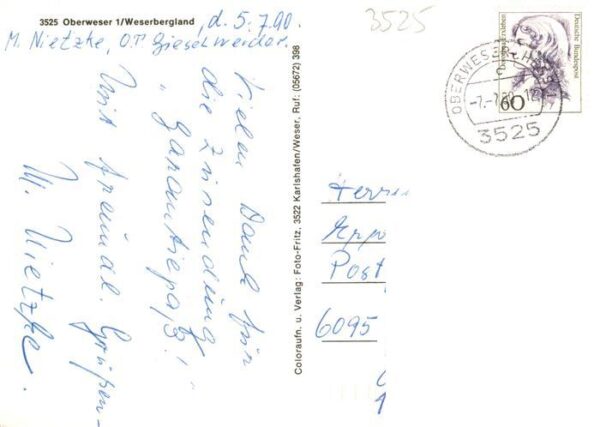 3525 Oberweser 1/Weserbergland
, d. 5.7.90.
M. Nietzke, O.T. Gieselwerder.
Vielen Dank für
die Zusendung
„Garantiepaß!"
Mit freundl. Grüßen
M. Nietzke.
Coloraufn. u. Verlag: Foto-Fritz, 3522 Karlshafen/Weser, Ruf: (05672) 398
3525
Deutsche Bundespost
60
OBERWESER
3525
Herrn
Post
6095